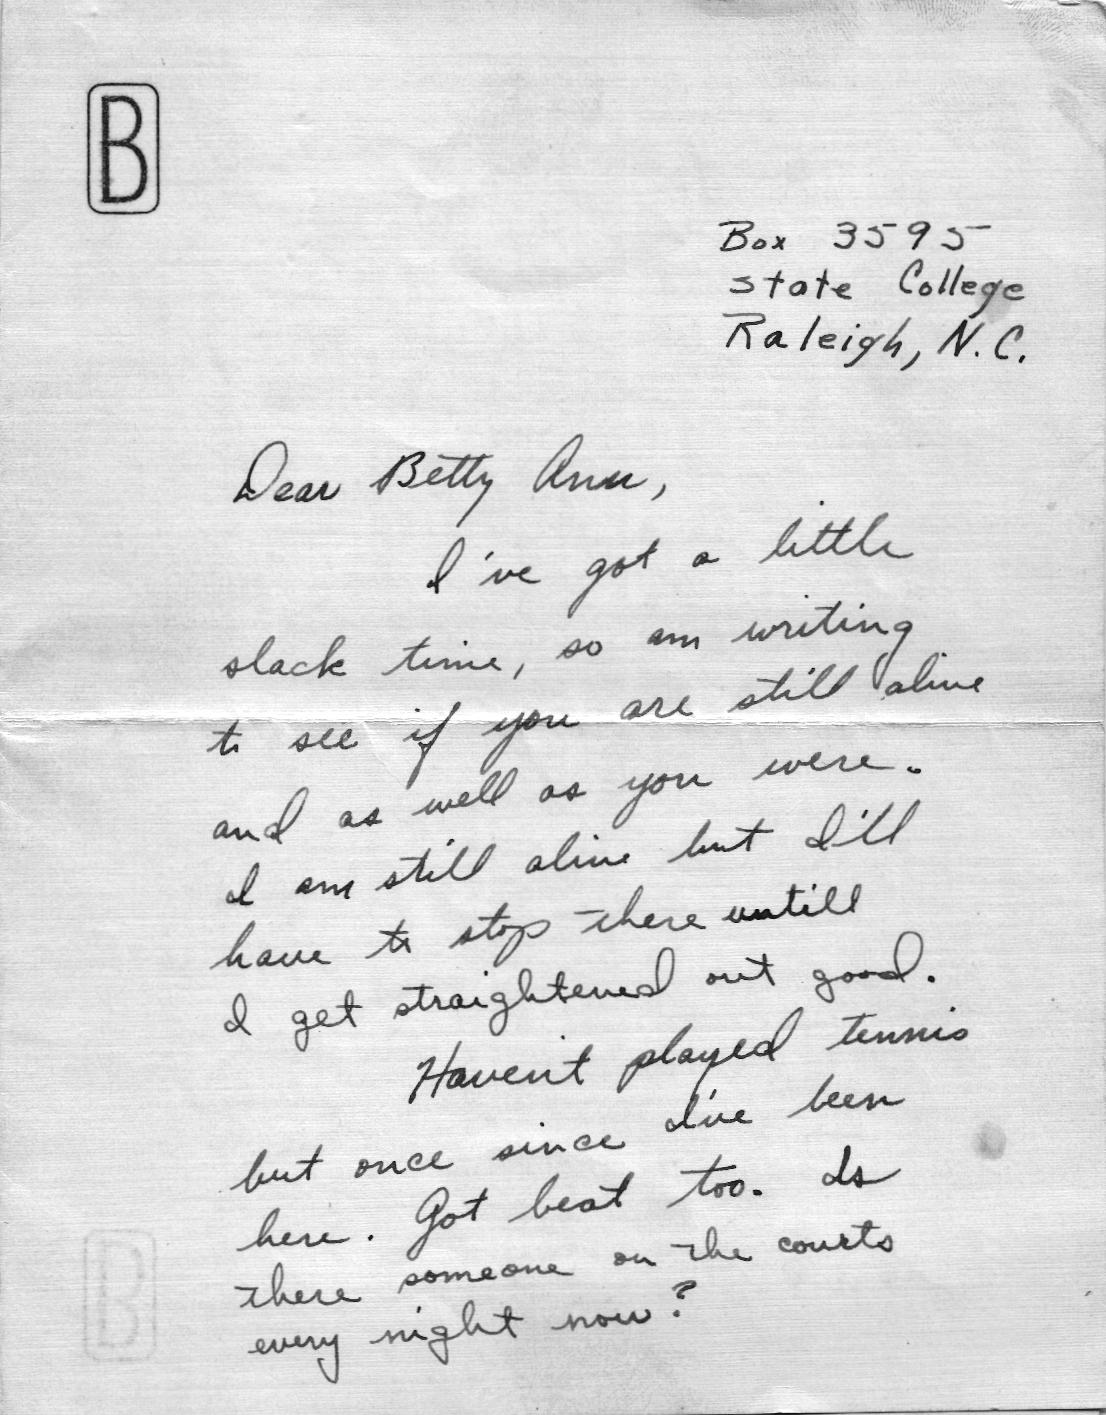 B
Box 3595
State College
Raleigh, N.C.
Dear Betty Ann,
I've got a little
slack time, so am writing
to see if you are still alive
and as well as you were.
I am still alive but I'll
have to stop there untill
I get straightened out good.
Haven't played tennis
but once since I've been
here. Got beat too. Is
there someone on the courts
every night now?
B